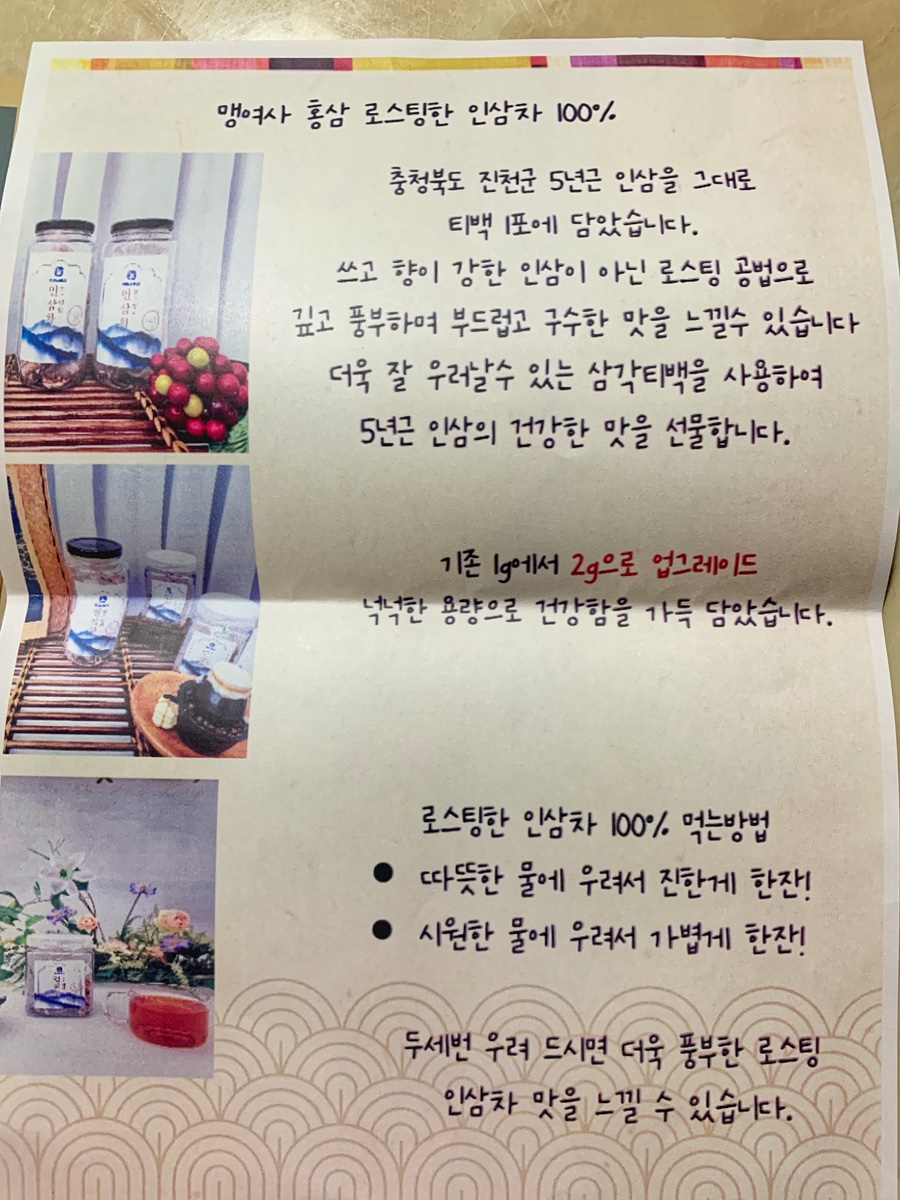 맹여사 홍삼 로스팅한 인삼차 100%
충청북도 진천군 5년근 인삼을 그대로
티백 1포에 담았습니다.
쓰고 향이 강한 인삼이 아닌 로스팅 공법으로
깊고 풍부하며 부드럽고 구수한 맛을 느낄수 있습니다
더욱 잘 우러날수 있는 삼각티백을 사용하여
5년근 인삼의 건강한 맛을 선물합니다.
기존 1g에서 2g으로 업그레이드
넉넉한 용량으로 건강함을 가득 담았습니다.
로스팅한 인삼차 100% 먹는방법
● 따뜻한 물에 우려서 진한게 한잔!
● 시원한 물에 우려서 가볍게 한잔!
두세번 우려 드시면 더욱 풍부한 로스팅
인삼차 맛을 느낄 수 있습니다.
인삼차
인삼차